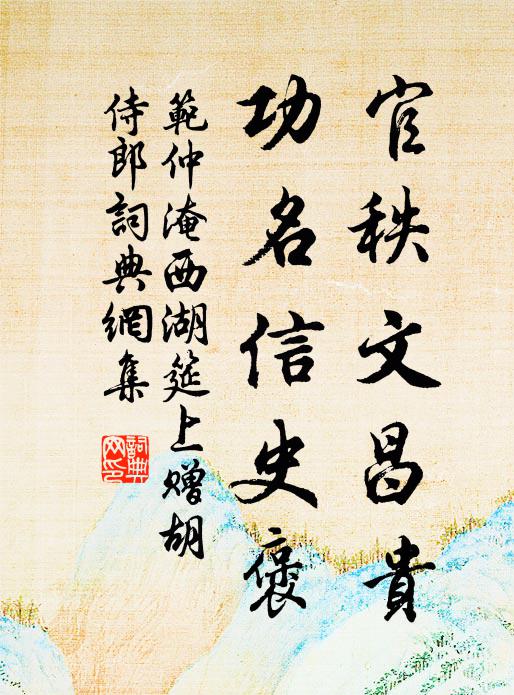 官秩文昌貴
功名信史褒
範仲淹西湖筵上贈胡
侍郎詞典網集
詞典
网印